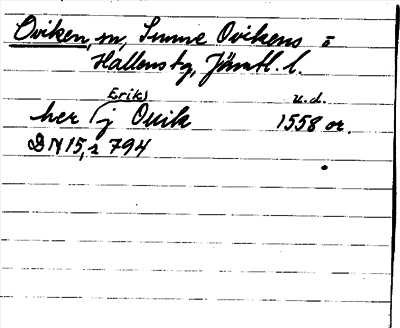 Oviken, m, Sunne Ovikens o
Hallens tg, Jämtl. l.
(Erik) u.d.
her j Ouik 1558 or.
DN 15, s 794